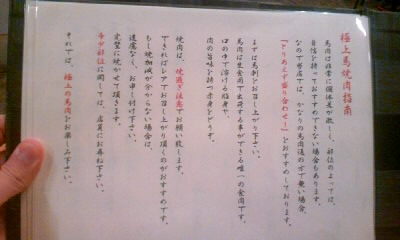 極上馬焼肉指南
馬肉は非常に個体差が激しく、部位のよっては、
自信を持っておすすめできない場合もあります。
なので当店では、かなりの馬肉通の方で無い場合、
「とりあえず盛り合わせ!」をおすすめしております。
まずは馬刺をお召し上がり下さい。
馬肉は生食用で出荷する事ができる唯一の食肉です。
口の中で溶ける脂身や、
肉の旨味を持つ赤身をどうぞ。
焼肉は、焼過ぎ注意でお願い致します。
できればレアでお召し上がり頂くのがおすすめです。
もし焼加減が分からない場合は、
遠慮なく、お申し付け下さい。
完璧に焼かせて頂きます。
希少部位に関しては、店員にお尋ね下さい。
それでは、極上の馬肉をお楽しみ下さい。